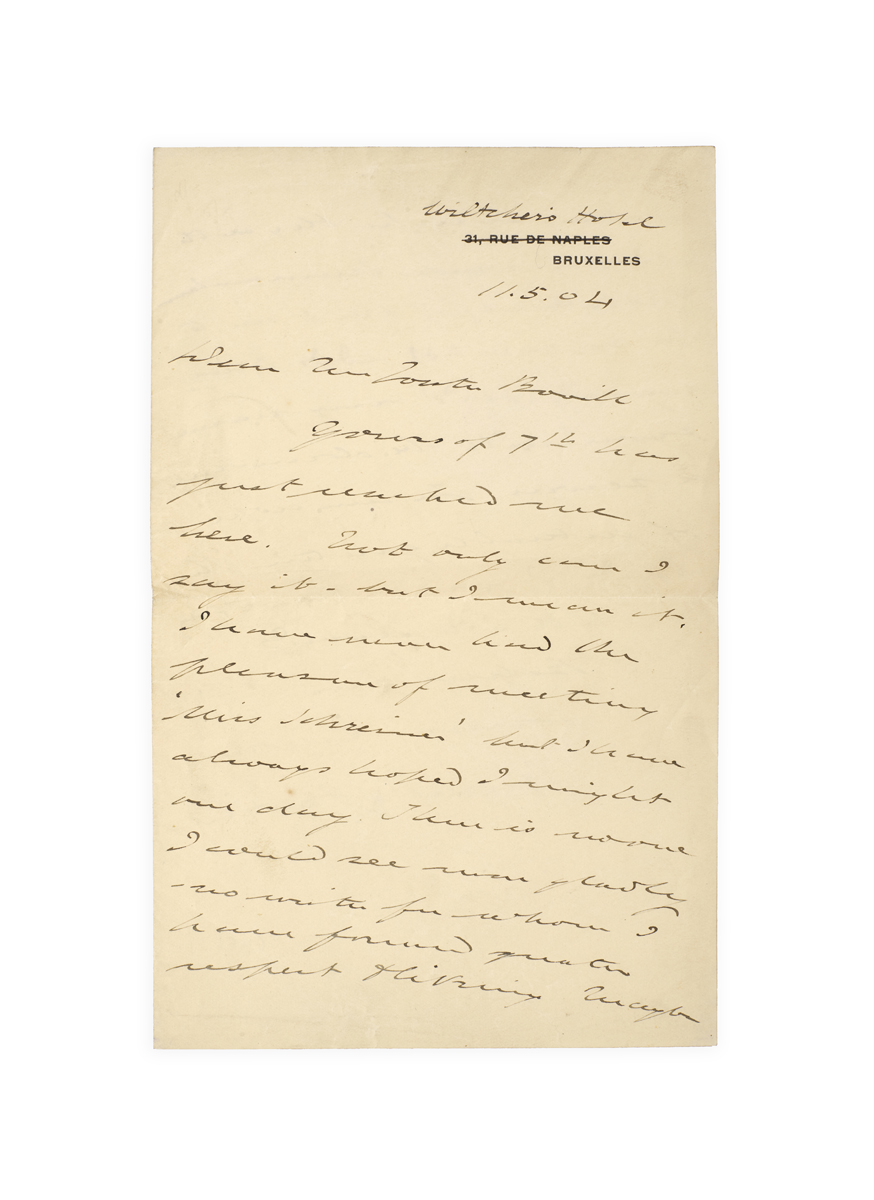 Wiltcher's Hotel
31, RUE DE NAPLES
BRUXELLES
11.5.04
Dear Mrs Foster Bovill
Yours of 7th has
just reached me
here. Not only can I
say it - but I mean it.
I have never had the
pleasure of meeting
'Miss Schreiner' but I have
always hoped I might
one day. There is no one
I would see more gladly
- no writer for whom I
have formed greater
respect & liking Maybe